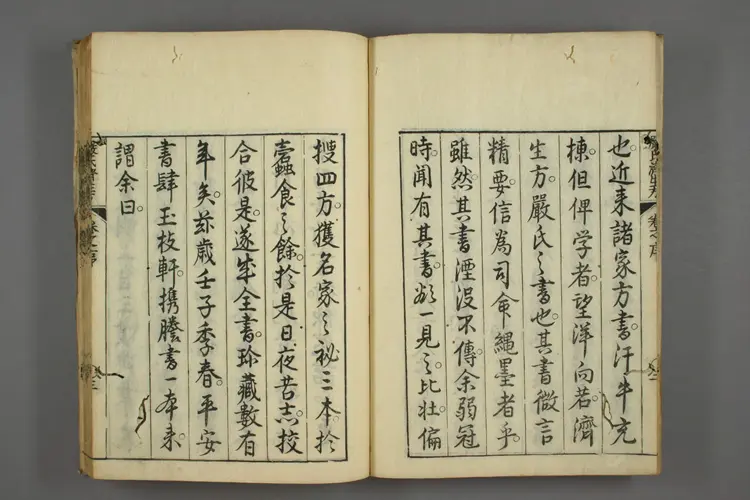 也近来諸家方書。汗牛充
棟。但俾学者。望洋向若。濟
生方。嚴氏之書也。其書微言
精要。信為司命繩墨者乎。
雖然。其書湮没不傳。余弱冠
時。聞有其書。欲一見之。比壮。偏
搜四方。獲名家之祕三本。於
蠹食之餘。於是日夜苦志。挍
合彼是。遂成全書。珍藏數有
年矣。茲歳壬子季春。平安
書肆玉枝軒。携謄書一本来。
謂余曰。